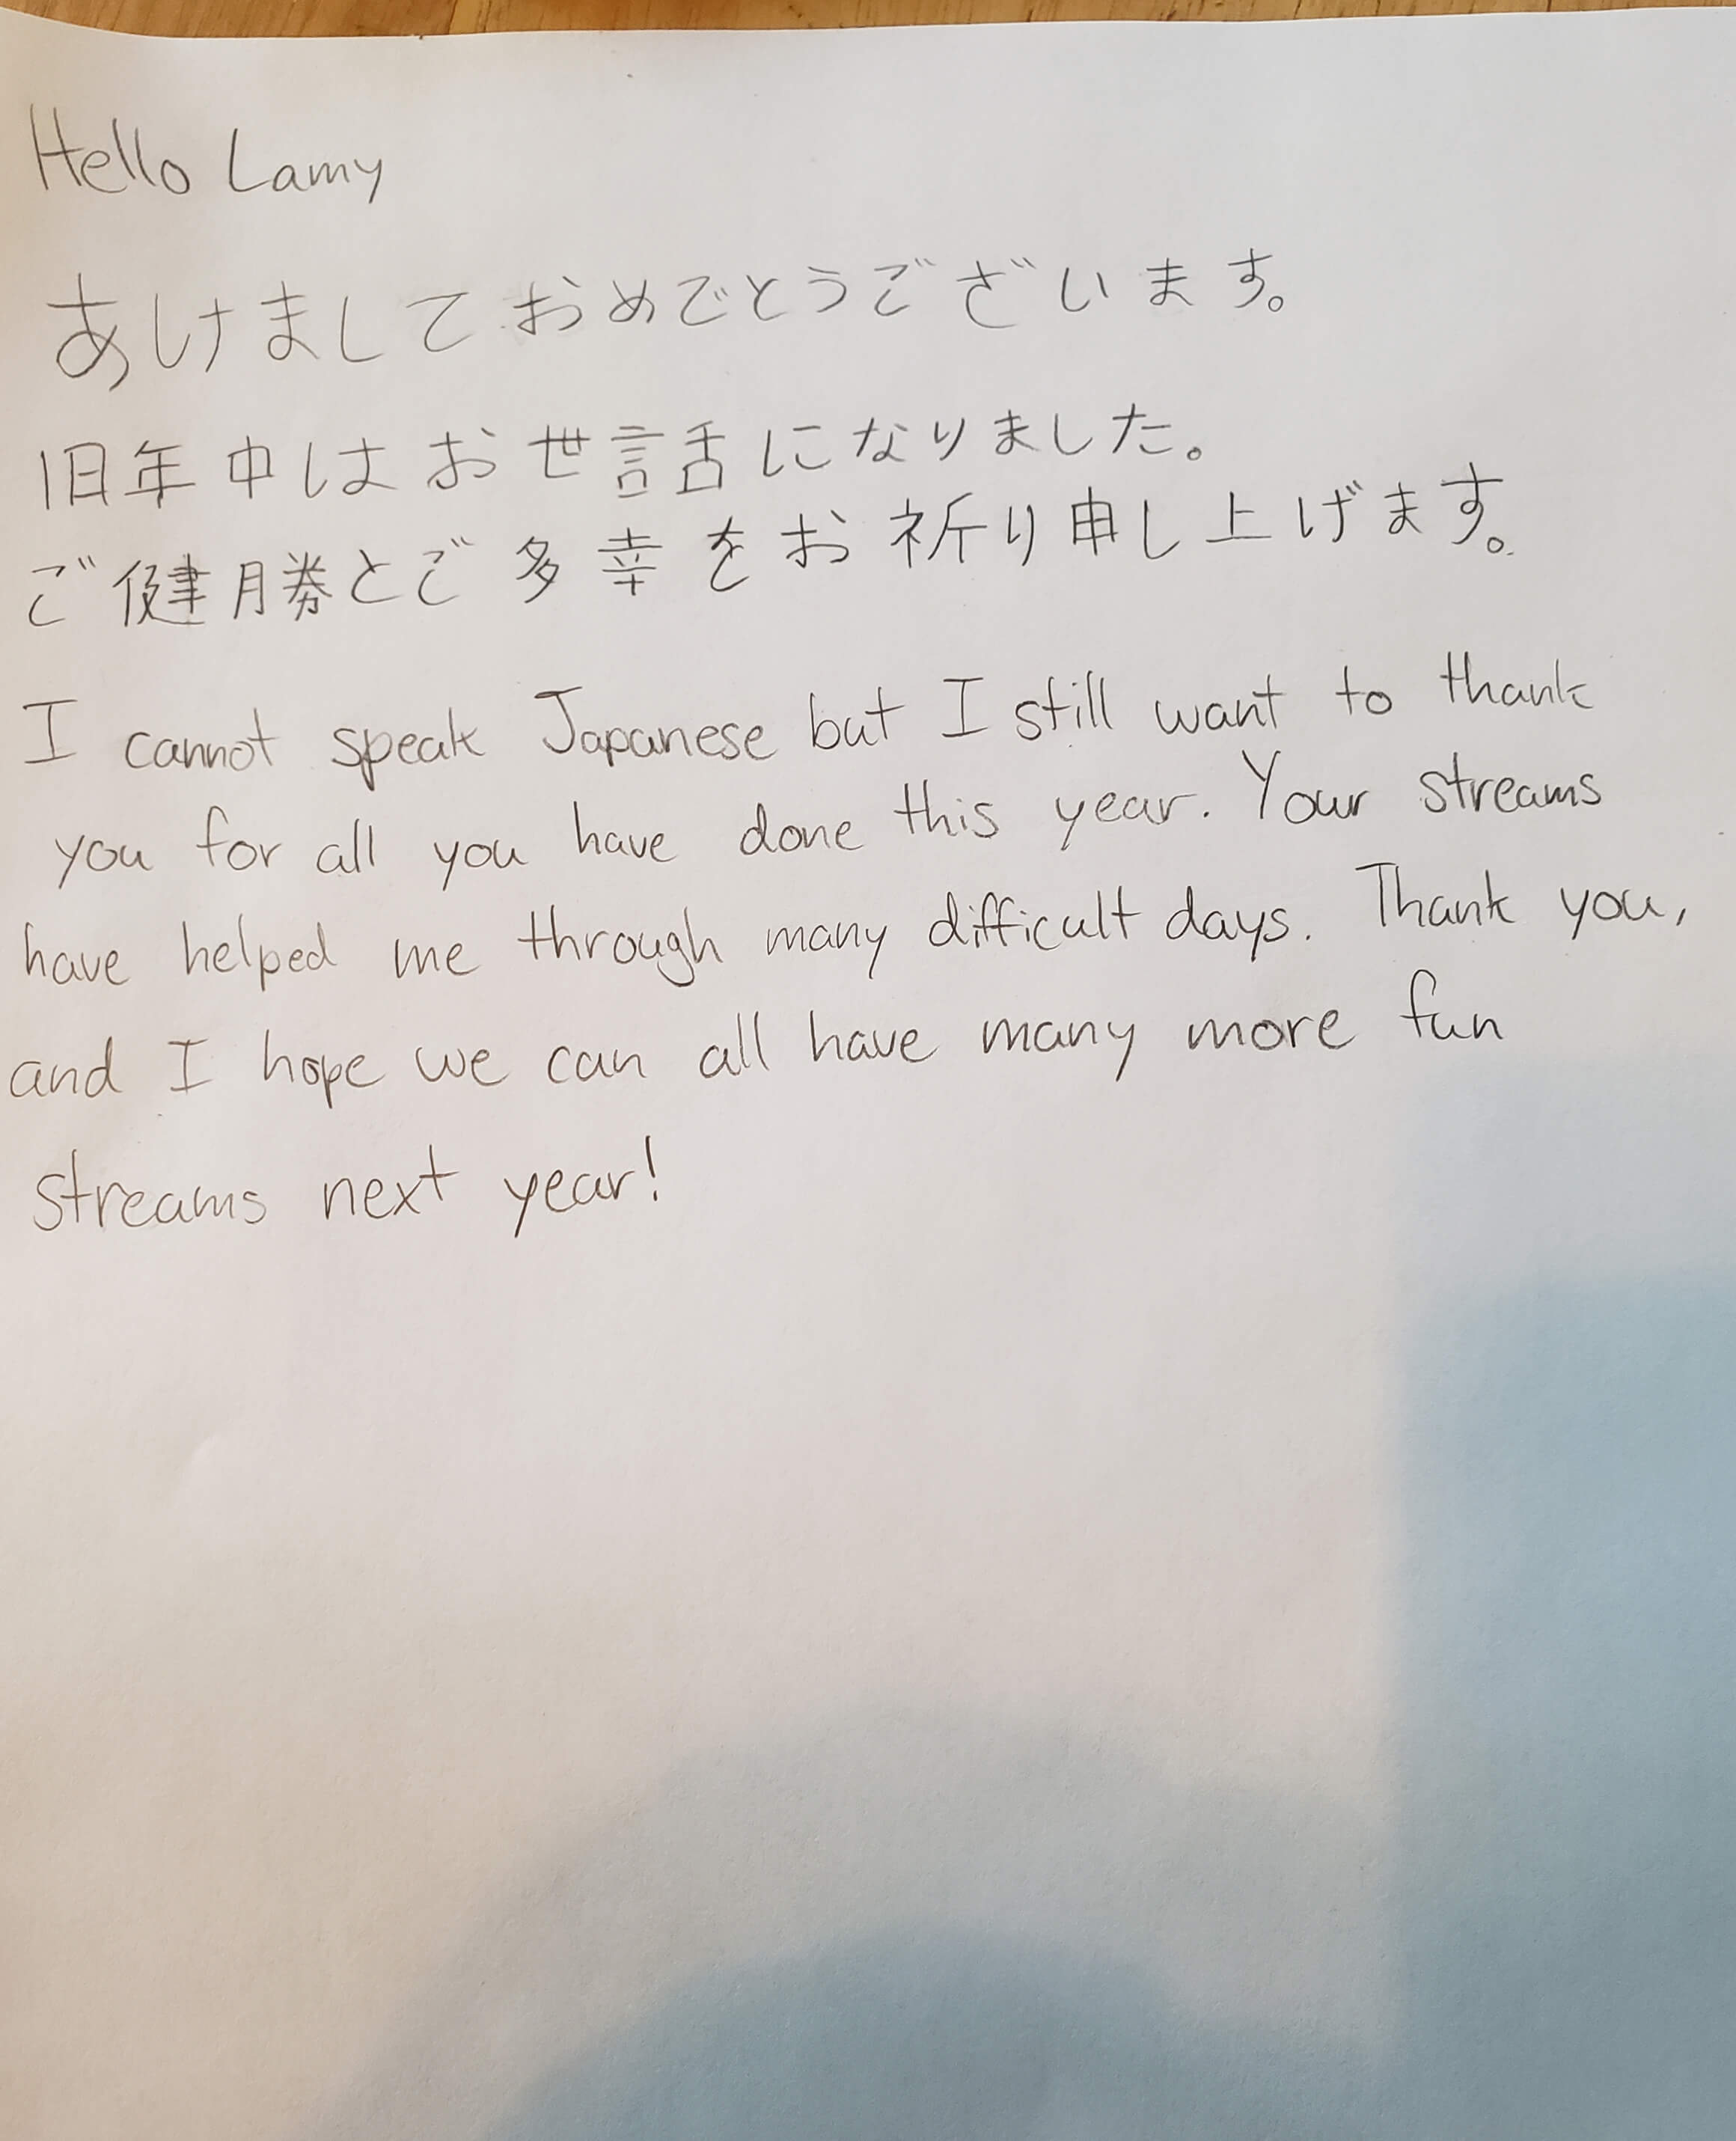 Hello Lamy
あけましておめでとうございます。
旧年中はお世話になりました。
ご健勝とご多幸をお祈り申し上げます。
I cannot speak Japanese but I still want to thank
you for all you have done this year. Your streams
have helped me through many difficult days. Thank you,
and I hope we can all have many more fun
streams next year!